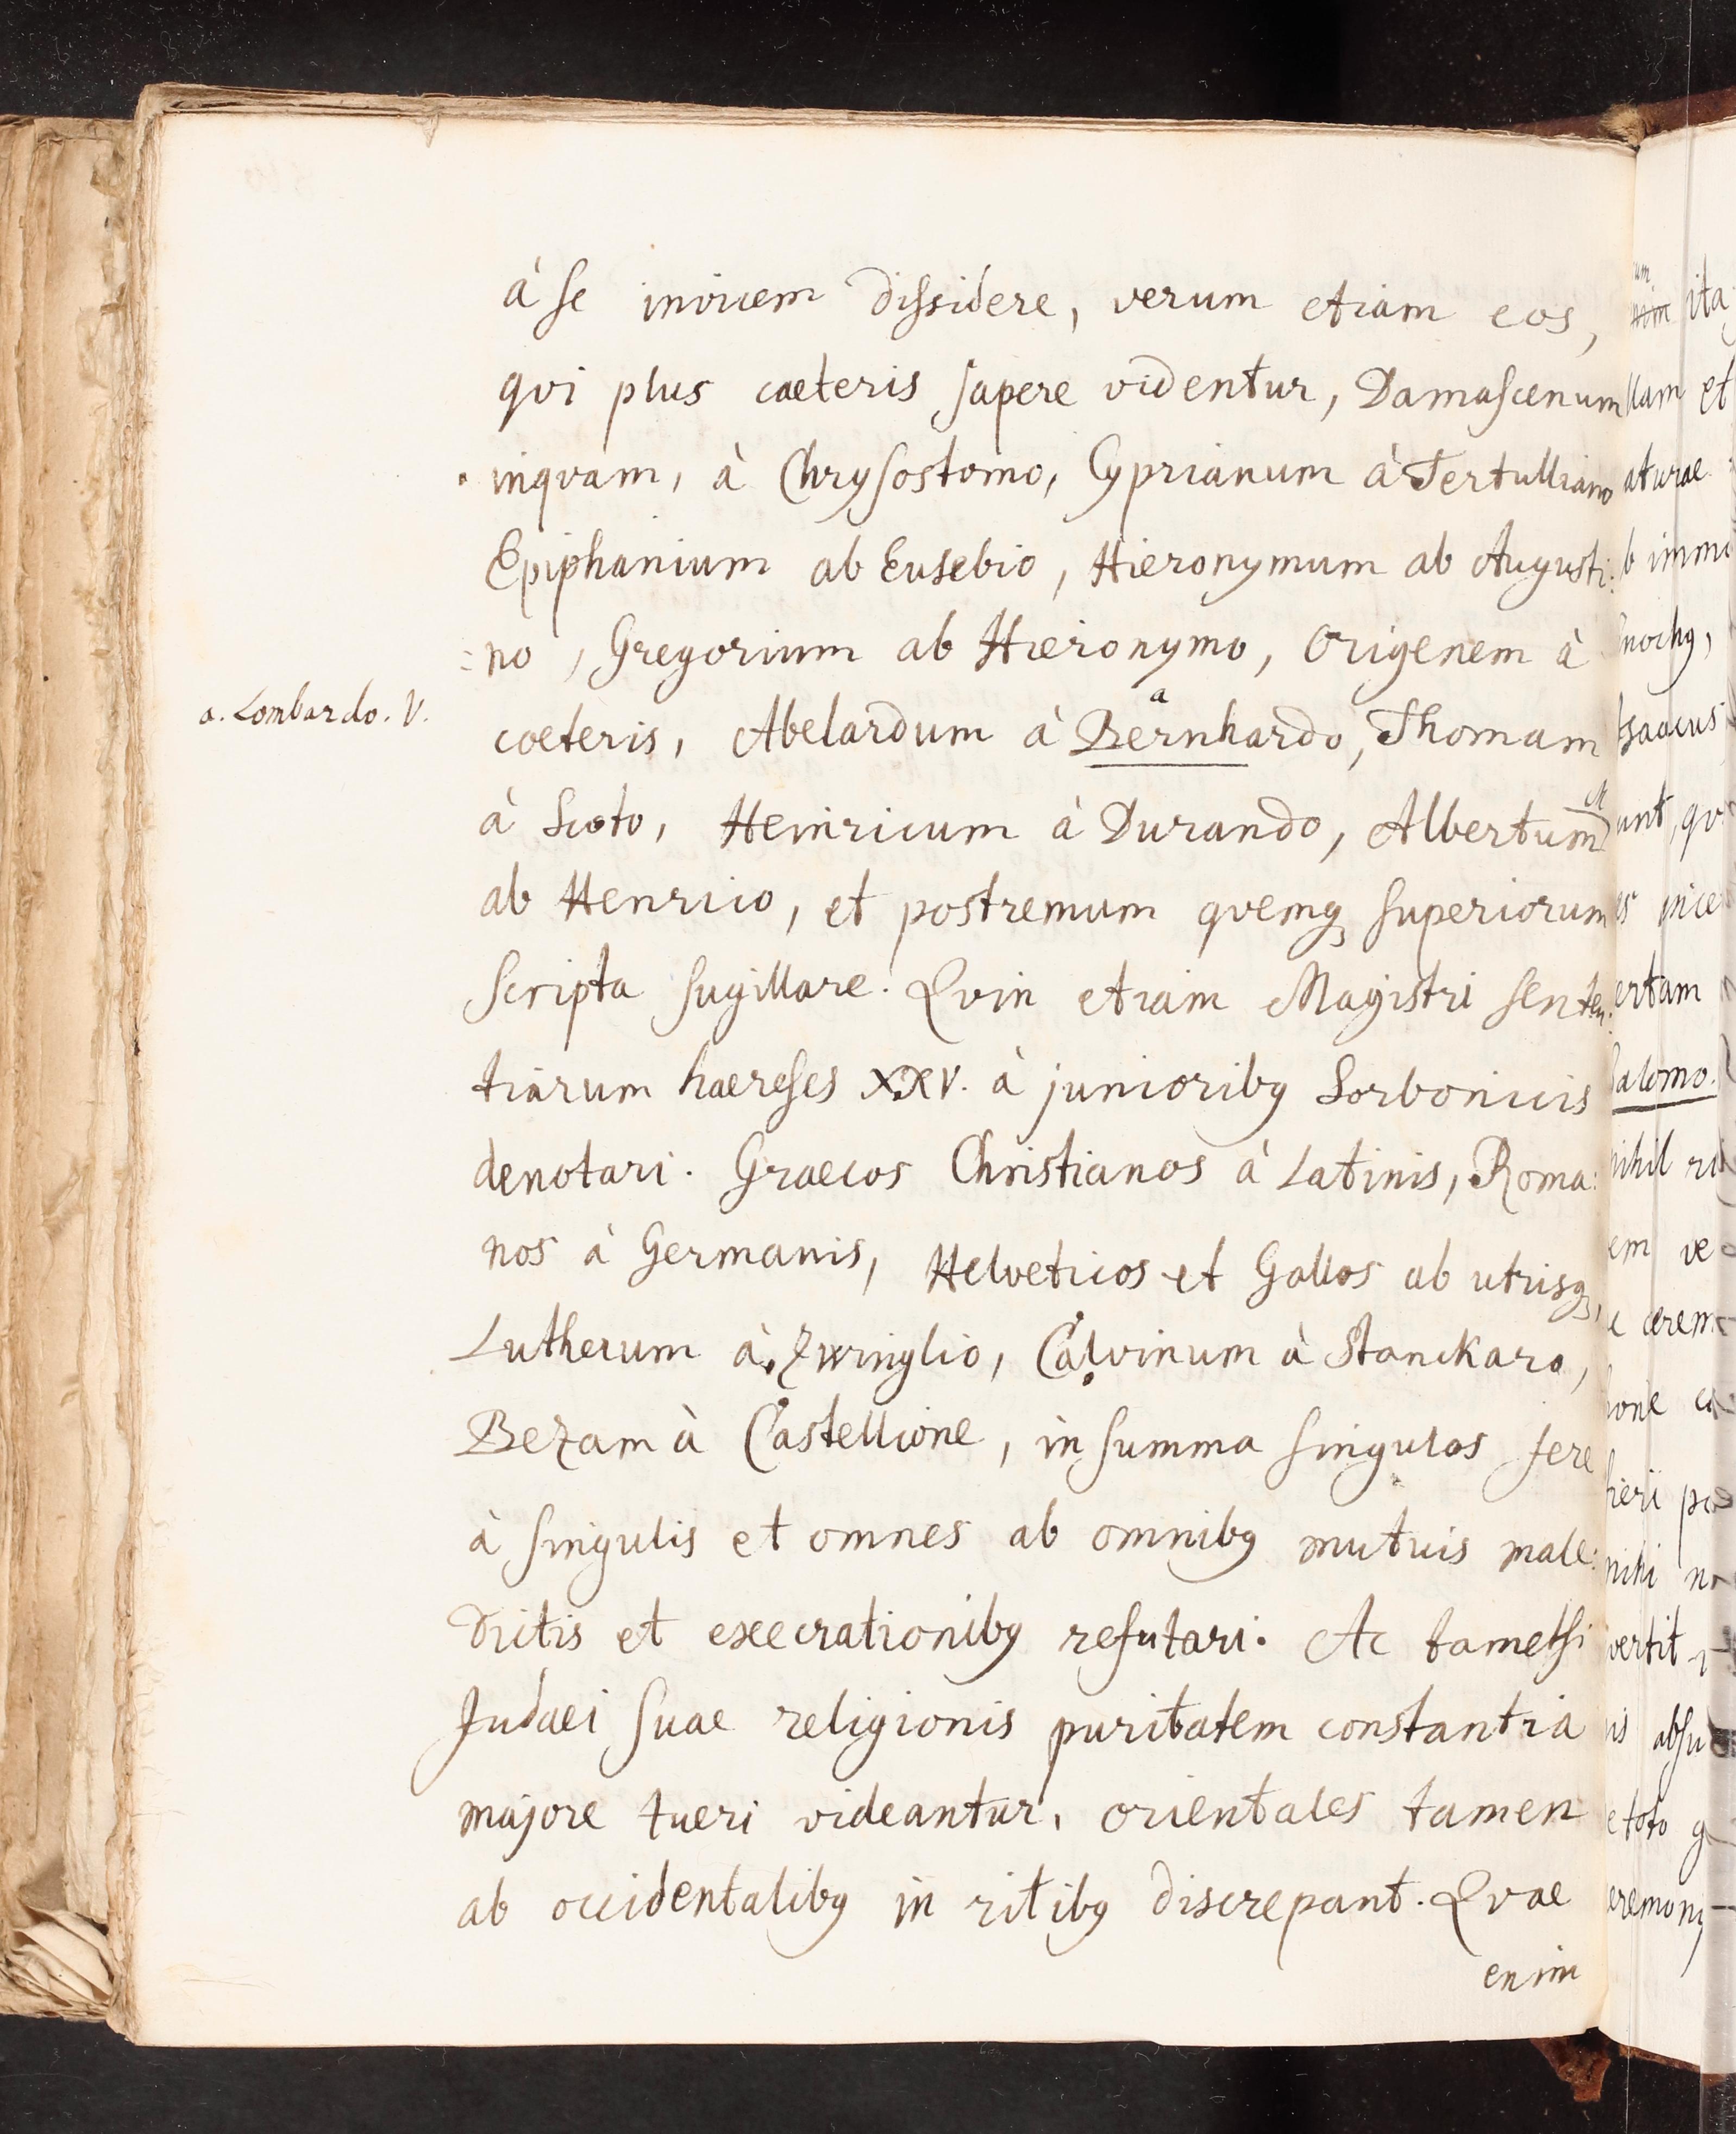 à se invicem dissidere, verum etiam eos,
qvi plus caeteris sapere videntur, Damascenum
inqvam, à Chrysostomo, Cyprianum à Tertulliano
Epiphanium ab Eusebio, Hieronymum ab Augusti:
=no, Gregorium ab Hieronymo, Origenem à
a. Lombardo. V.
coeteris, Abelardum à Bernhardo, a Thomam
à Scoto, Heinricum à Durando, Albertum M
ab Henrico, et postremum qvemq3 superiorum
scripta sugillare. Qvin etiam Magistri senten:
tiarum haereses XXV. à junioribꝰ Sorbonicis
denotari. Graecos Christianos à Latinis, Roma:
nos à Germanis, Helveticos et Gallos ab utrisq3,
Lutherum à Zwinglio, Calvinum à Stanckaro,
Bezam à Castellione, in summa singulos fere
à singulis et omnes ab omnibꝰ mutuis male:
dictis et execrationibꝰ refutari. Ac tametsi
Judaei suae religionis puritatem constantia
majore tueri videantur, orientales tamen
ab occidentalibꝰ in ritibꝰ discrepant. Qvae
enim
ita
llam et
aturae
b immo
nochꝰ,
Isaacus
unt, qv
ertam
Salomo.
nihil
em ve
cerem
fieri
mihi
vertit
is absu
e toto